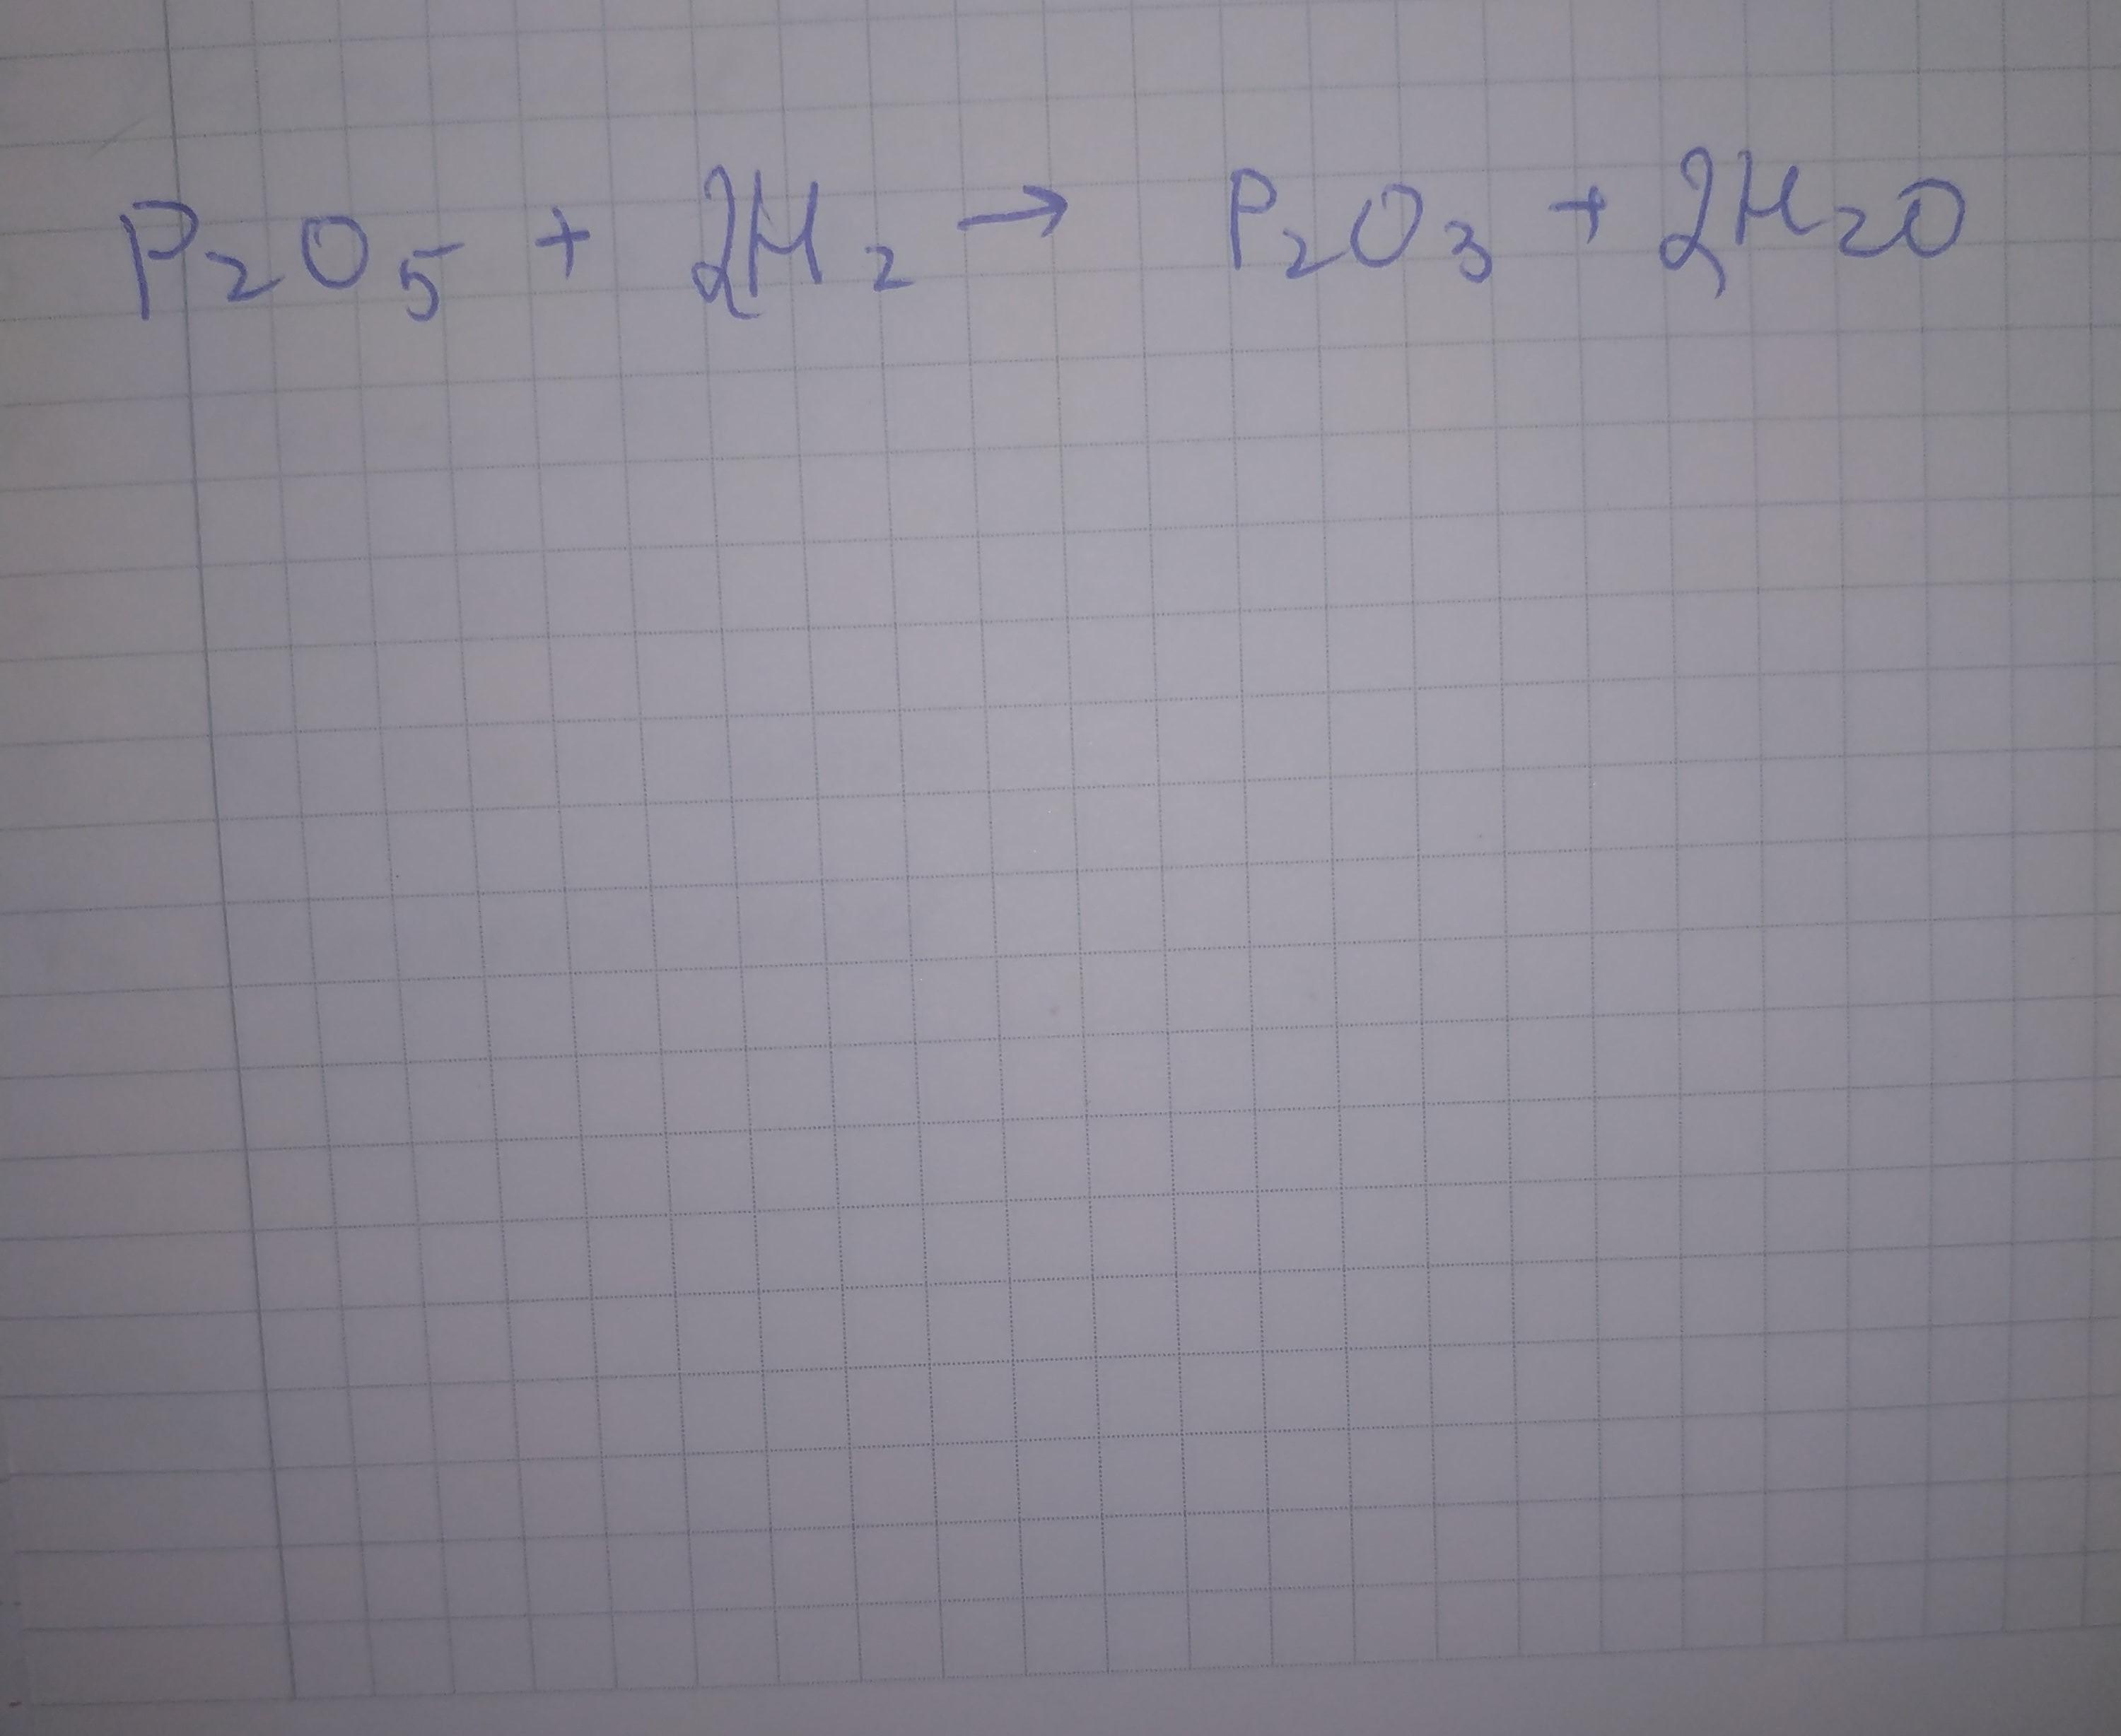 P₂O₅ + 2H₂ → P₂O₃ + 2H₂O